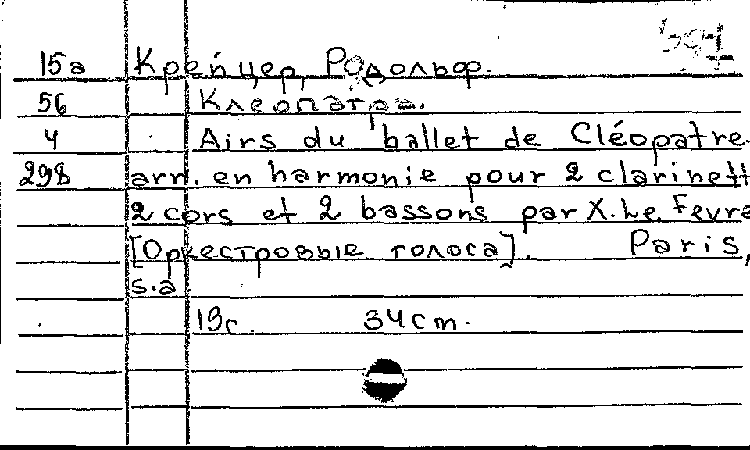 15а Крейцер, Родольф.
56 Клеопатра.
4 Airs du ballet de Cléopatre
298 arr. en harmonie pour 2 clarinett
2 cors et 2 bassons par X. Le Fevre
[Оркестровые голоса]. Paris,
s.a
19с. 34cm.